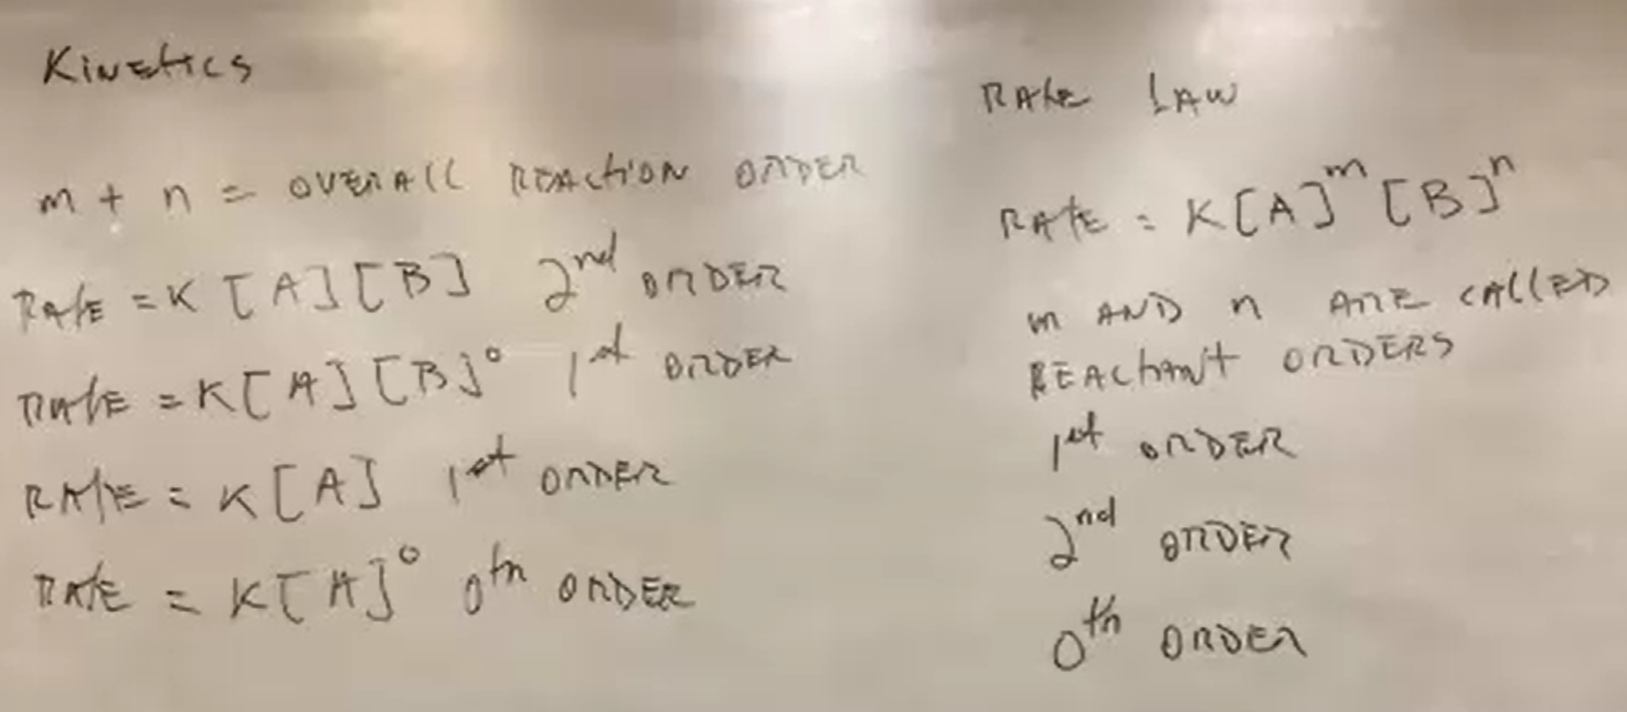 Kinetics
m + n = OVERALL REACTION ORDER
RATE = K [A][B] 2nd ORDER
RATE = K[A][B]° 1st ORDER
RATE = K[A] 1st ORDER
RATE = K[A]° 0th ORDER
RATE LAW
RATE = K[A]^m [B]^n
m AND n ARE CALLED
REACTANT ORDERS
1st ORDER
2nd ORDER
0th ORDER